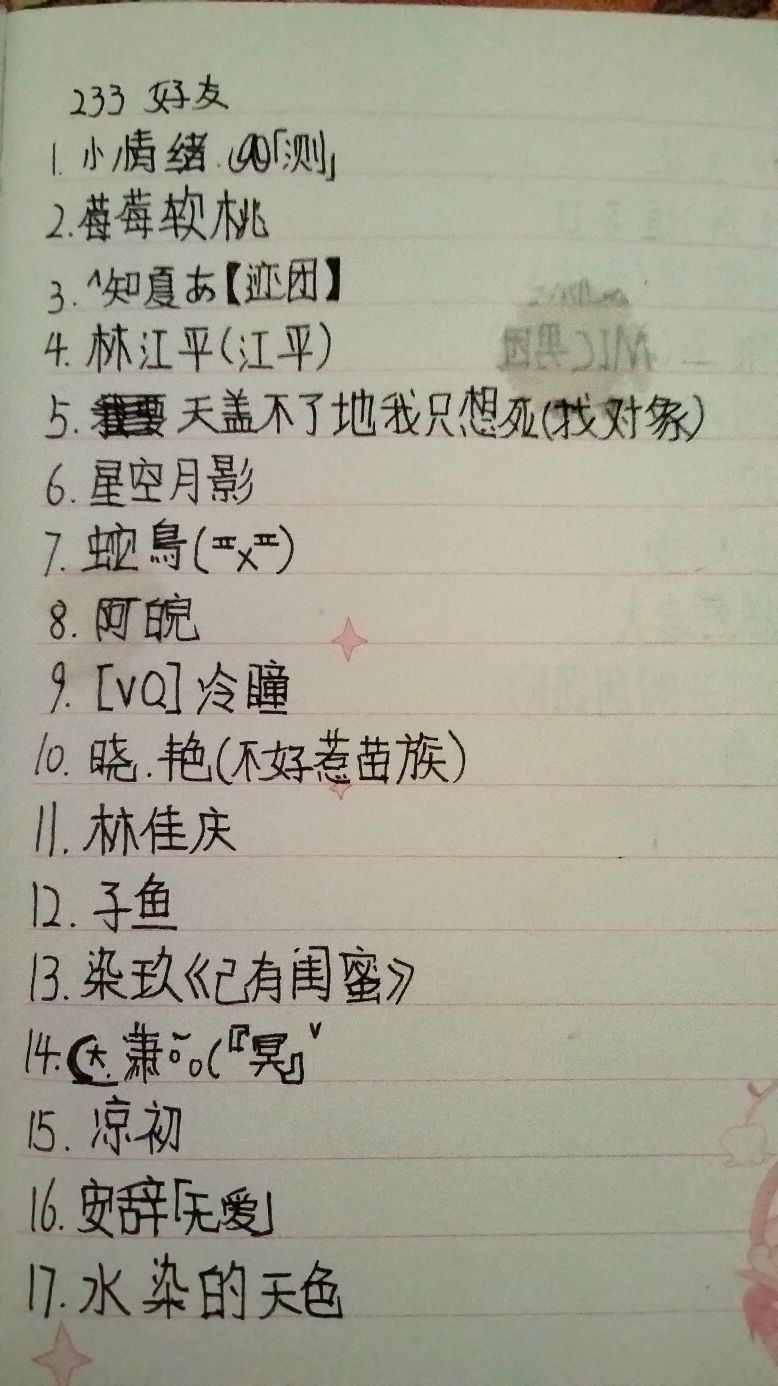 233 好友
1. 小情绪.「测」
2. 莓莓软桃
3. ^知夏あ【迹团】
4. 林江平(江平)
5. 天盖不了地我只想死(找对象)
6. 星空月影
7. 蛇鳥(ᆖxᆖ)
8. 阿皖
9. [VQ]冷瞳
10. 晓.艳(不好惹苗族)
11. 林佳庆
12. 子鱼
13. 染玖《已有闺蜜》
14. 萧(『冥』ˇ
15. 凉初
16. 安辞「无爱」
17. 水染的天色
MIC男团